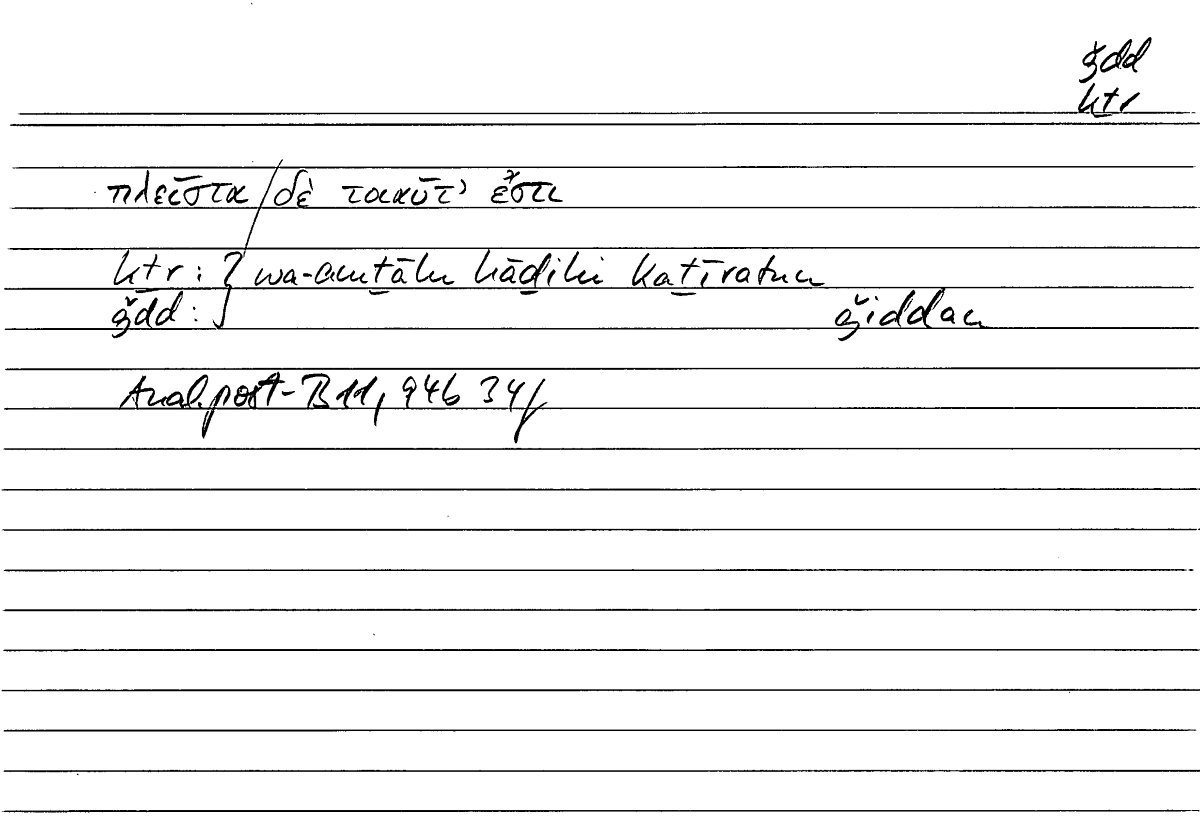 ǧdd
kṯr
πλεῖστα / δὲ τοιαῦτ’ ἔστι
kṯr : } wa-amṯālu hāḏihi kaṯīratun
ǧdd : ǧiddan
Anal. post- B 11, 94b 34f